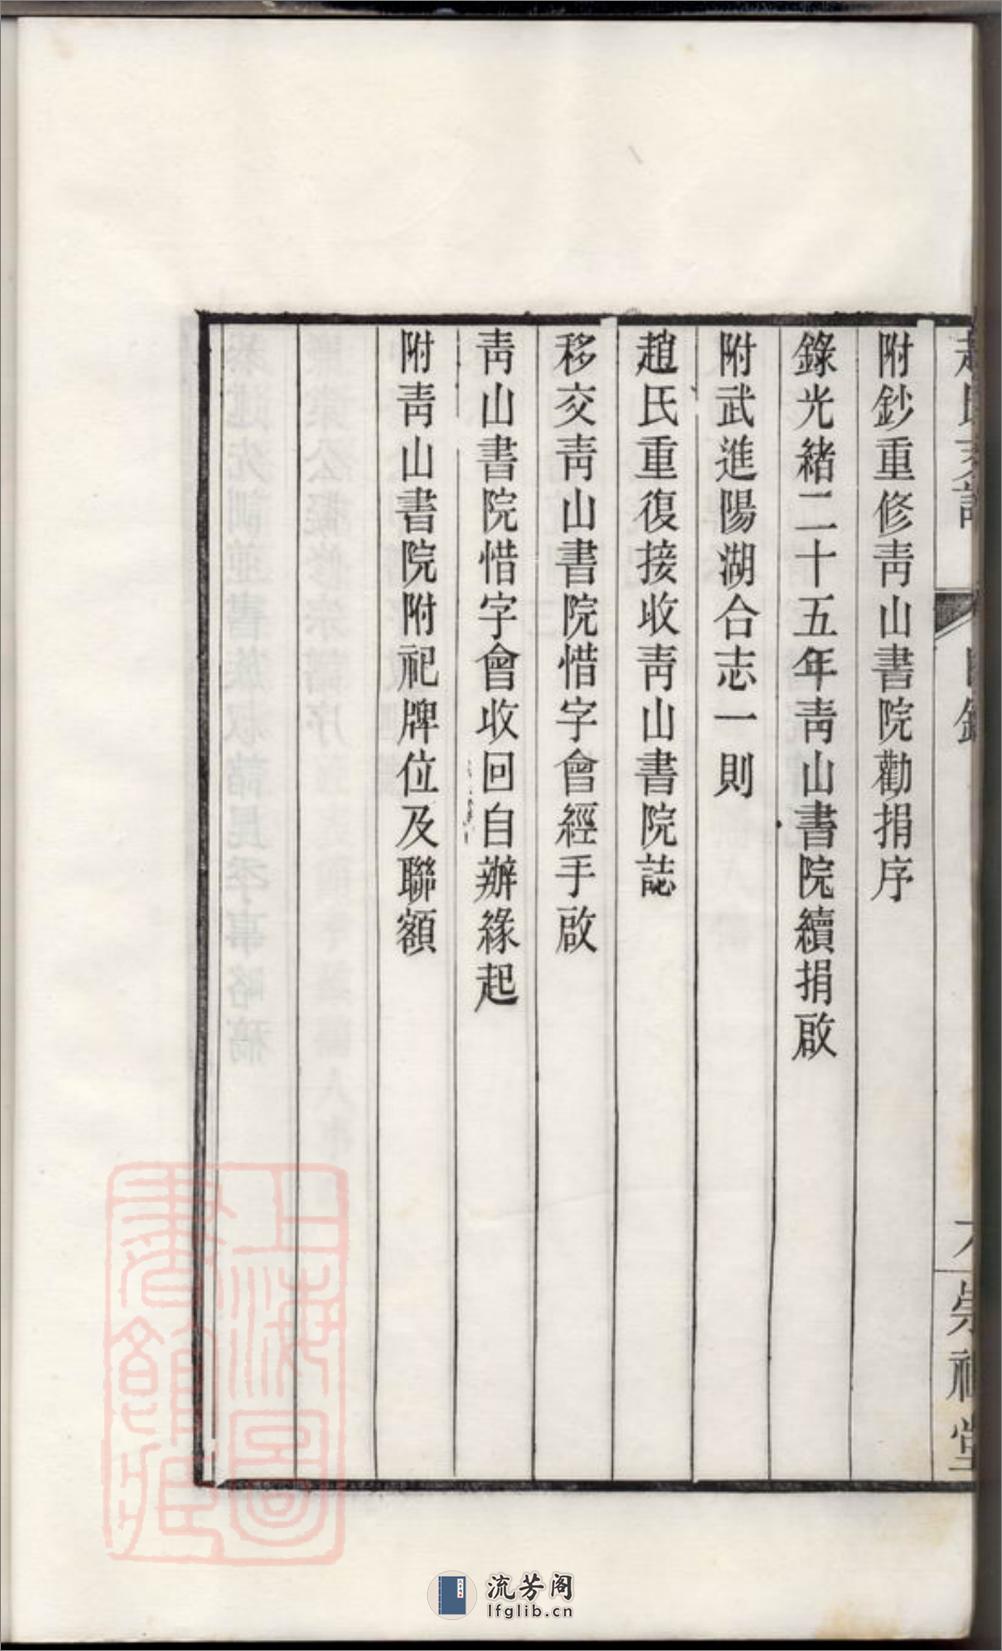 附鈔重修靑山書院勸捐序
錄光緖二十五年靑山書院續捐啟
附武進陽湖合志一則
趙氏重復接收靑山書院誌
移交靑山書院惜字會經手啟
靑山書院惜字會收回自辦緣起
附靑山書院附祀牌位及聯額
上海圖書館藏
流芳阁
lfglib.cn